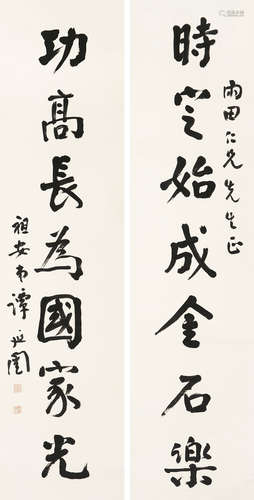 時定始成金石樂
雨田仁兄先生正
功高長為國家光
祖安弟譚延闓